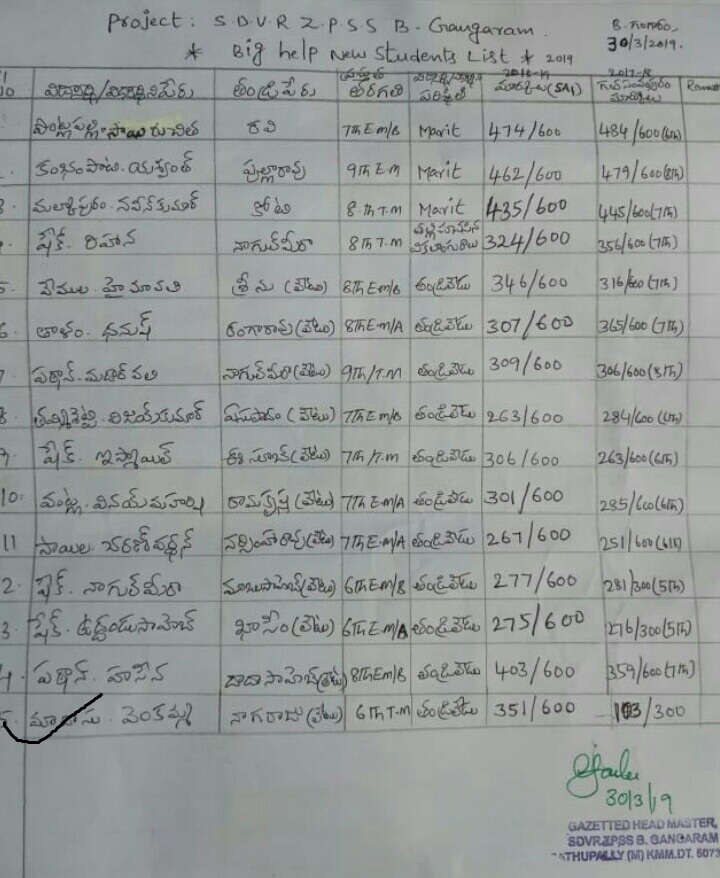 Project: S.D.V.R Z.P.S.S B. Gangaram.
B. గంగారం,
30/3/2019.
* Big help New Students List * 2019
విద్యార్థి/విద్యార్థినిపేరు తండ్రిపేరు ప్రస్తుత తరగతి 2018-19 మార్కులు (SA1) 2017-18 గత సంవత్సరం మార్కులు
సాయి రుచిత రవి 7th E.M/B Marit 474/600 484/600(6th)
కంభంపాటి. యశ్వంత్ పుల్లారావు 9th E.M Marit 462/600 479/600(8th)
నవీన్ కుమార్ కోటి 8.th T.M Marit 435/600 445/600(7th)
షేక్. రిహాన నాగుల్ మీరా 8th T.M 324/600 356/600(7th)
5. వేముల. హైమావతి శ్రీను (లేటు) 8th E.M/B తండ్రిలేడు 346/600 316/600(7th)
6. తాళం. ధనుష్ రంగారావు(లేటు) 8th E.M/A తండ్రిలేడు 307/600 365/600(7th)
7. పఠాన్. మదార్ వలి నాగుల్ మీరా(లేటు) 9th/T.M తండ్రిలేడు 309/600 306/600(8th)
8. విజయ్ కుమార్ (లేటు) 7th E.M/B తండ్రిలేడు 263/600 284/600(6th)
9. షేక్. ఇస్మాయిల్ (లేటు) 7th/T.M తండ్రిలేడు 306/600 263/600(6th)
10. వినయ్ మహర్షి రామకృష్ణ (లేటు) 7th E.M/A తండ్రిలేడు 301/600 285/600(6th)
11 సాయిల. నర్సింహారావు(లేటు) 7th E.M/A తండ్రిలేడు 267/600 251/600(6th)
2. షేక్. నాగుల్ మీరా (లేటు) 6th E.M/B తండ్రిలేడు 277/600 281/300(5th)
3. షేక్. ఉద్దండుసాహెబ్ ఖాసీం(లేటు) 6th E.M/A తండ్రిలేడు 275/600 276/300(5th)
4. పఠాన్. హసీన దాదాసాహెబ్(లేటు) 8th E.M/B తండ్రిలేడు 403/600 359/600(7th)
5. వెంకమ్మ నాగరాజు(లేటు) 6th T.M తండ్రిలేడు 351/600 103/300
30/3/19
GAZETTED HEAD MASTER,
SDVRZPSS B. GANGARAM
ATHUPALLY (M) KMM.DT. 5073